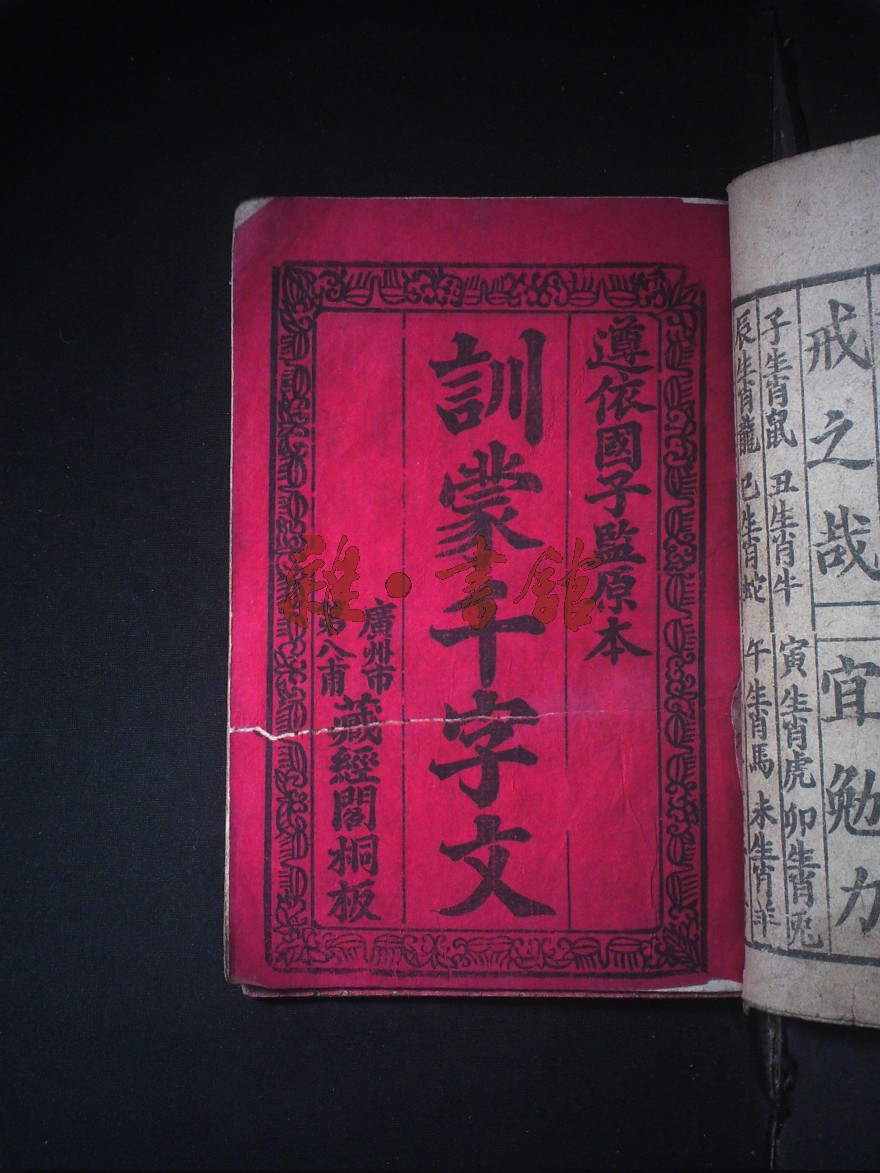 戒之哉
宜勉力
子生肖鼠 丑生肖牛 寅生肖虎 卯生肖兎
辰生肖龍 巳生肖蛇 午生肖馬 未生肖羊
遵依國子監原本
訓蒙千字文
廣州市
第八甫
藏經閣桐板
雜·書館